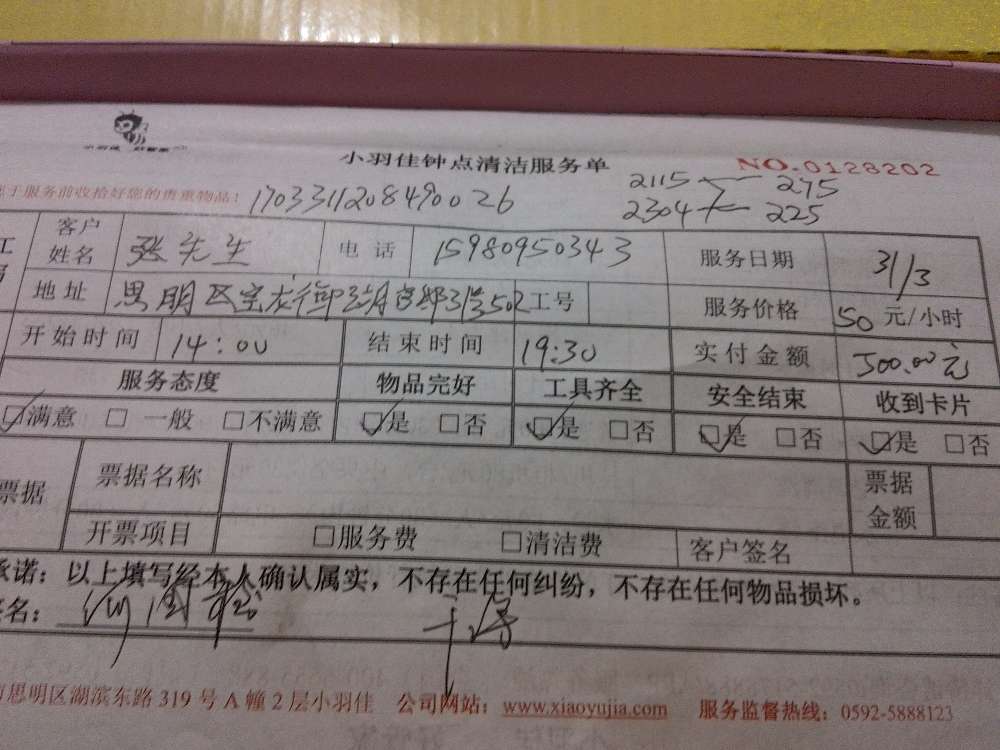 小羽佳钟点清洁服务单 NO.0128202
于服务前收拾好您的贵重物品! 1703311208490026 2115 275
2304 225
客户姓名 张先生 电话 15980950343 服务日期 31/3
地址 思明区宝龙御湖官邸3号502 工号 服务价格 50元/小时
开始时间 14:00 结束时间 19:30 实付金额 500.00元
服务态度 物品完好 工具齐全 安全结束 收到卡片
☑满意 □一般 □不满意 ☑是 □否 ☑是 □否 ☑是 □否 ☑是 □否
票据 票据名称 票据金额
开票项目 □服务费 □清洁费 客户签名
承诺:以上填写经本人确认属实,不存在任何纠纷,不存在任何物品损坏。
签名:
思明区湖滨东路319号A幢2层小羽佳 公司网站:www.xiaoyujia.com 服务监督热线:0592-5888123